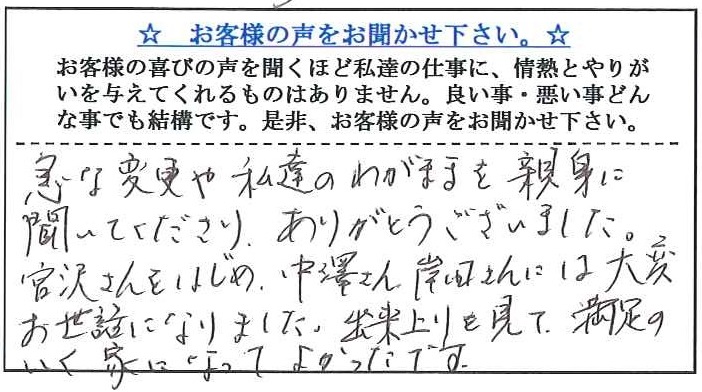 ☆ お客様の声をお聞かせ下さい。☆
お客様の喜びの声を聞くほど私達の仕事に、情熱とやりが
いを与えてくれるものはありません。良い事・悪い事どん
な事でも結構です。是非、お客様の声をお聞かせ下さい。
急な変更や私達のわがままを親身に
聞いてくださり、ありがとうございました。
宮沢さんをはじめ、中澤さん、岸田さんには大変
お世話になりました。出来上りを見て、満足の
いく家になってよかったです。